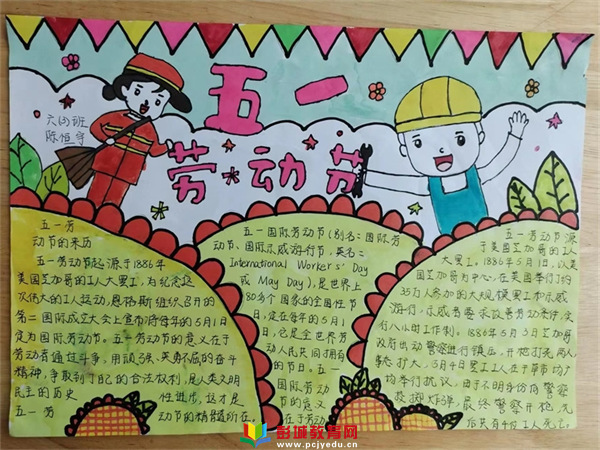 五一
劳动节
六(3)班
陈恒宇
五一劳
动节的来历
五一劳动节起源于1886年
美国芝加哥的工人大罢工,为纪念这
次伟大的工人运动,恩格斯组织召开的
第二国际成立大会上宣布将每年的5月1日
定为国际劳动节。五一劳动节的意义在于
劳动者通过斗争,用顽强、英勇不屈的奋斗
精神,争取到了自己的合法权利,是人类文明
民主的历史
性进步,这才是
五一劳
动节的精髓所在。
五一国际劳动节(别名:国际劳
动节、国际示威游行节,英名:
International Workers' Day
或 May Day),是世界上
80多个国家的全国性节
日,定在每年的5月1
日,它是全世界劳
动人民共同拥有
的节日。五一
国际劳动
节的意义
在于劳动
五一劳动节源
于美国芝加哥的工人
大罢工,1886年5月1日,以美
国芝加哥为中心,在美国举行了约
35万人参加的大规模罢工和示威
游行,示威者要求改善劳动条件,实
行八小时工作制。1886年5月3日芝加哥
政府出动警察进行镇压,开枪打死两人
事态扩大,5月4日罢工工人在干草市场广
场举行抗议,由于不明身份者向警察
投掷炸弹,最终警察开枪,先
后共有4位工人死亡。
彭城教育网
www.pcjyedu.cn